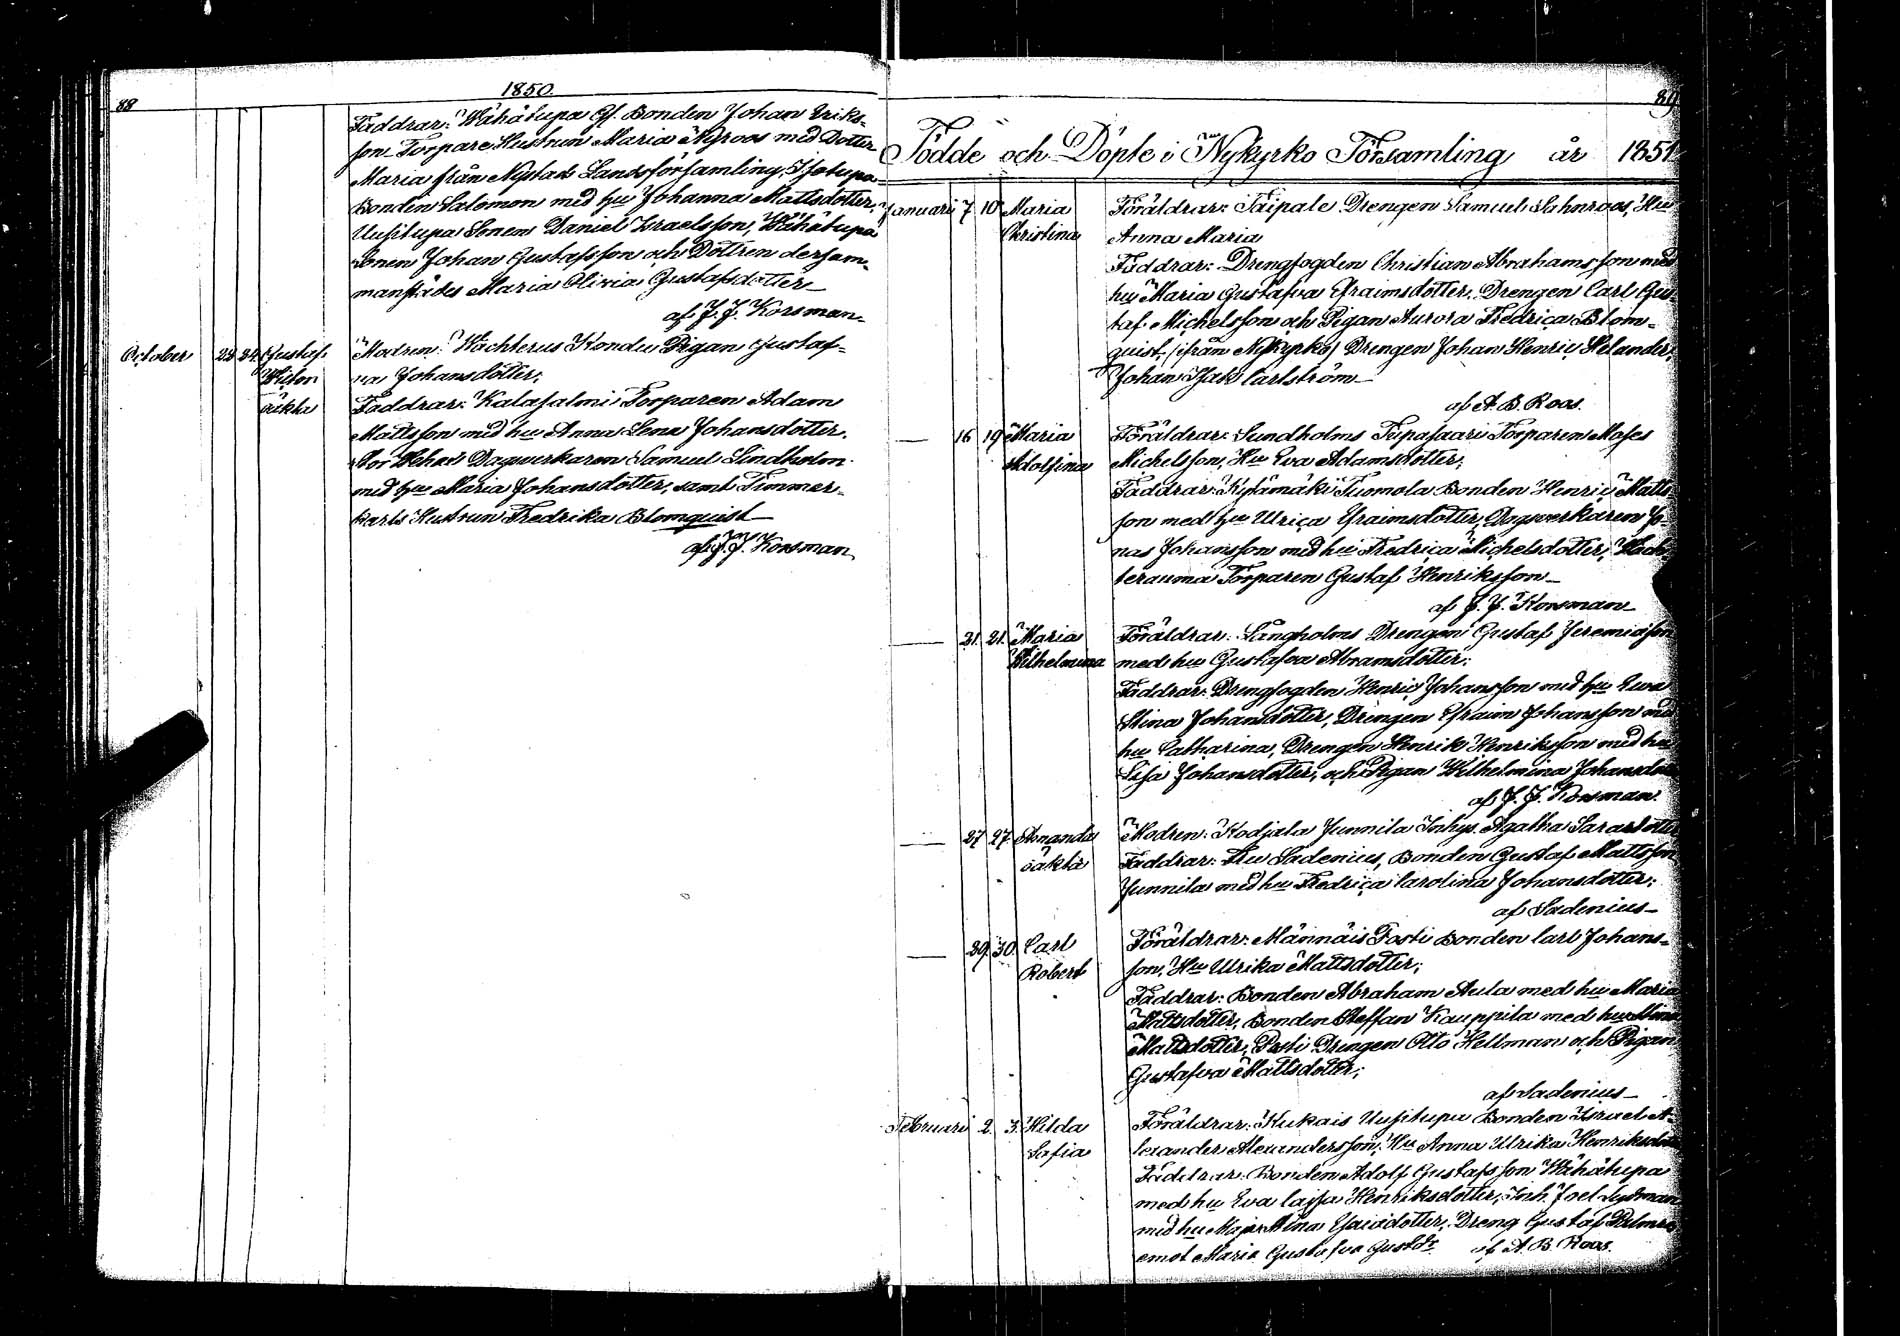 88
1850.
Faddrar: Wähätupa Gf. Bonden Johan Eriks-
son Torpare Hustrun Maria Nyroos med Dotter
Maria från Nystads Landsförsamling, Isotupa
Bonden Salomon med hu Johanna Mattsdotter,
Uusitupa Sonen Daniel Israelsson, Wähätupa
sonen Johan Gustafsson och Dottren dersam-
manstädes Maria Olivia Gustafsdotter
af J. J. Korsman
October 23 24 Gustaf
oäkta
Modren: Wächterus Kondu Pigan Gustaf-
va Johansdotter;
Faddrar: Kalasalmi Torparen Adam
Mattsson med hu Anna Lena Johansdotter.
Dagsverkaren Samuel Lindholm
med hu Maria Johansdotter, samt Timmer-
karls Hustrun Fredrika Blomquist
af J. J. Korsman
89
Födde och Döpte i Nykyrko Församling år 1851
Januari 7 10 Maria
Christina
Föräldrar: Taipale Drengen Samuel Sahnroos, Hu
Anna Maria
Faddrar: Drengfogden Christian Abrahamsson med
hu Maria Gustafva Efraimsdotter, Drengen Carl Gus-
taf Michelsson och Pigan Aurora Fredrica Blom-
quist, (ifrån Nykyrko) Drengen Johan Henric Helander,
Johan Isak Carlström
af A. B. Roos.
— 16 19 Maria
Adolfina
Föräldrar: Sundholms Torparen Moses
Michelsson, Hu Eva Adamsdotter;
Faddrar: Kylämäki Tuomola Bonden Henric Matts
son med hu Ulrica Efraimsdotter, Dagsverkaren Jo-
nas Johansson med hu Fredrica Michelsdotter,
Torparen Gustaf Henriksson
af J. J. Korsman
— 21. 21. Maria
Wilhelmina
Föräldrar: Långholms Drengen Gustaf Jeremiasson
med hu Gustafva Abramsdotter;
Faddrar: Drengfogden Henric Johansson med hu Ewa
Stina Johansdotter, Drengen Efraim Johansson med
hu Catharina, Drengen Henrik Henriksson med hu
Lisa Johansdotter, och Pigan Wilhelmina
af J. J. Korsman.
— 27 27. Amanda
oäkta
Modren: Kodjala Junnila Inhys. Agatha
Faddrar: Fru Sadenius, Bonden Gustaf Mattsson
Junnila med hu Fredrica Carolina Johansdotter;
af Sadenius
— 29. 30. Carl
Robert
Föräldrar: Männäis Posti Bonden Carl Johans-
son, Hu Ulrika Mattsdotter;
Faddrar: Bonden Abraham Aula med hu Maria
Mattsdotter, Bonden Steffan Kauppila med hu
Mattsdotter, Posti Drengen Otto Hellman och Pigan
Gustafva Mattsdotter;
af Sadenius
Februari 2. 3. Hilda
Sofia
Föräldrar: Kukais Uusitupa Bonden Israel A-
lexander Alexandersson, Hu Anna Ulrika
Faddrar: Bonden Adolf Gustafsson Wähätupa
med hu Eva Caisa Henriksdotter, Inh. Joel
med hu Maja Stina Dreng Gustaf
emot Maria Gustafva af A. B. Roos.